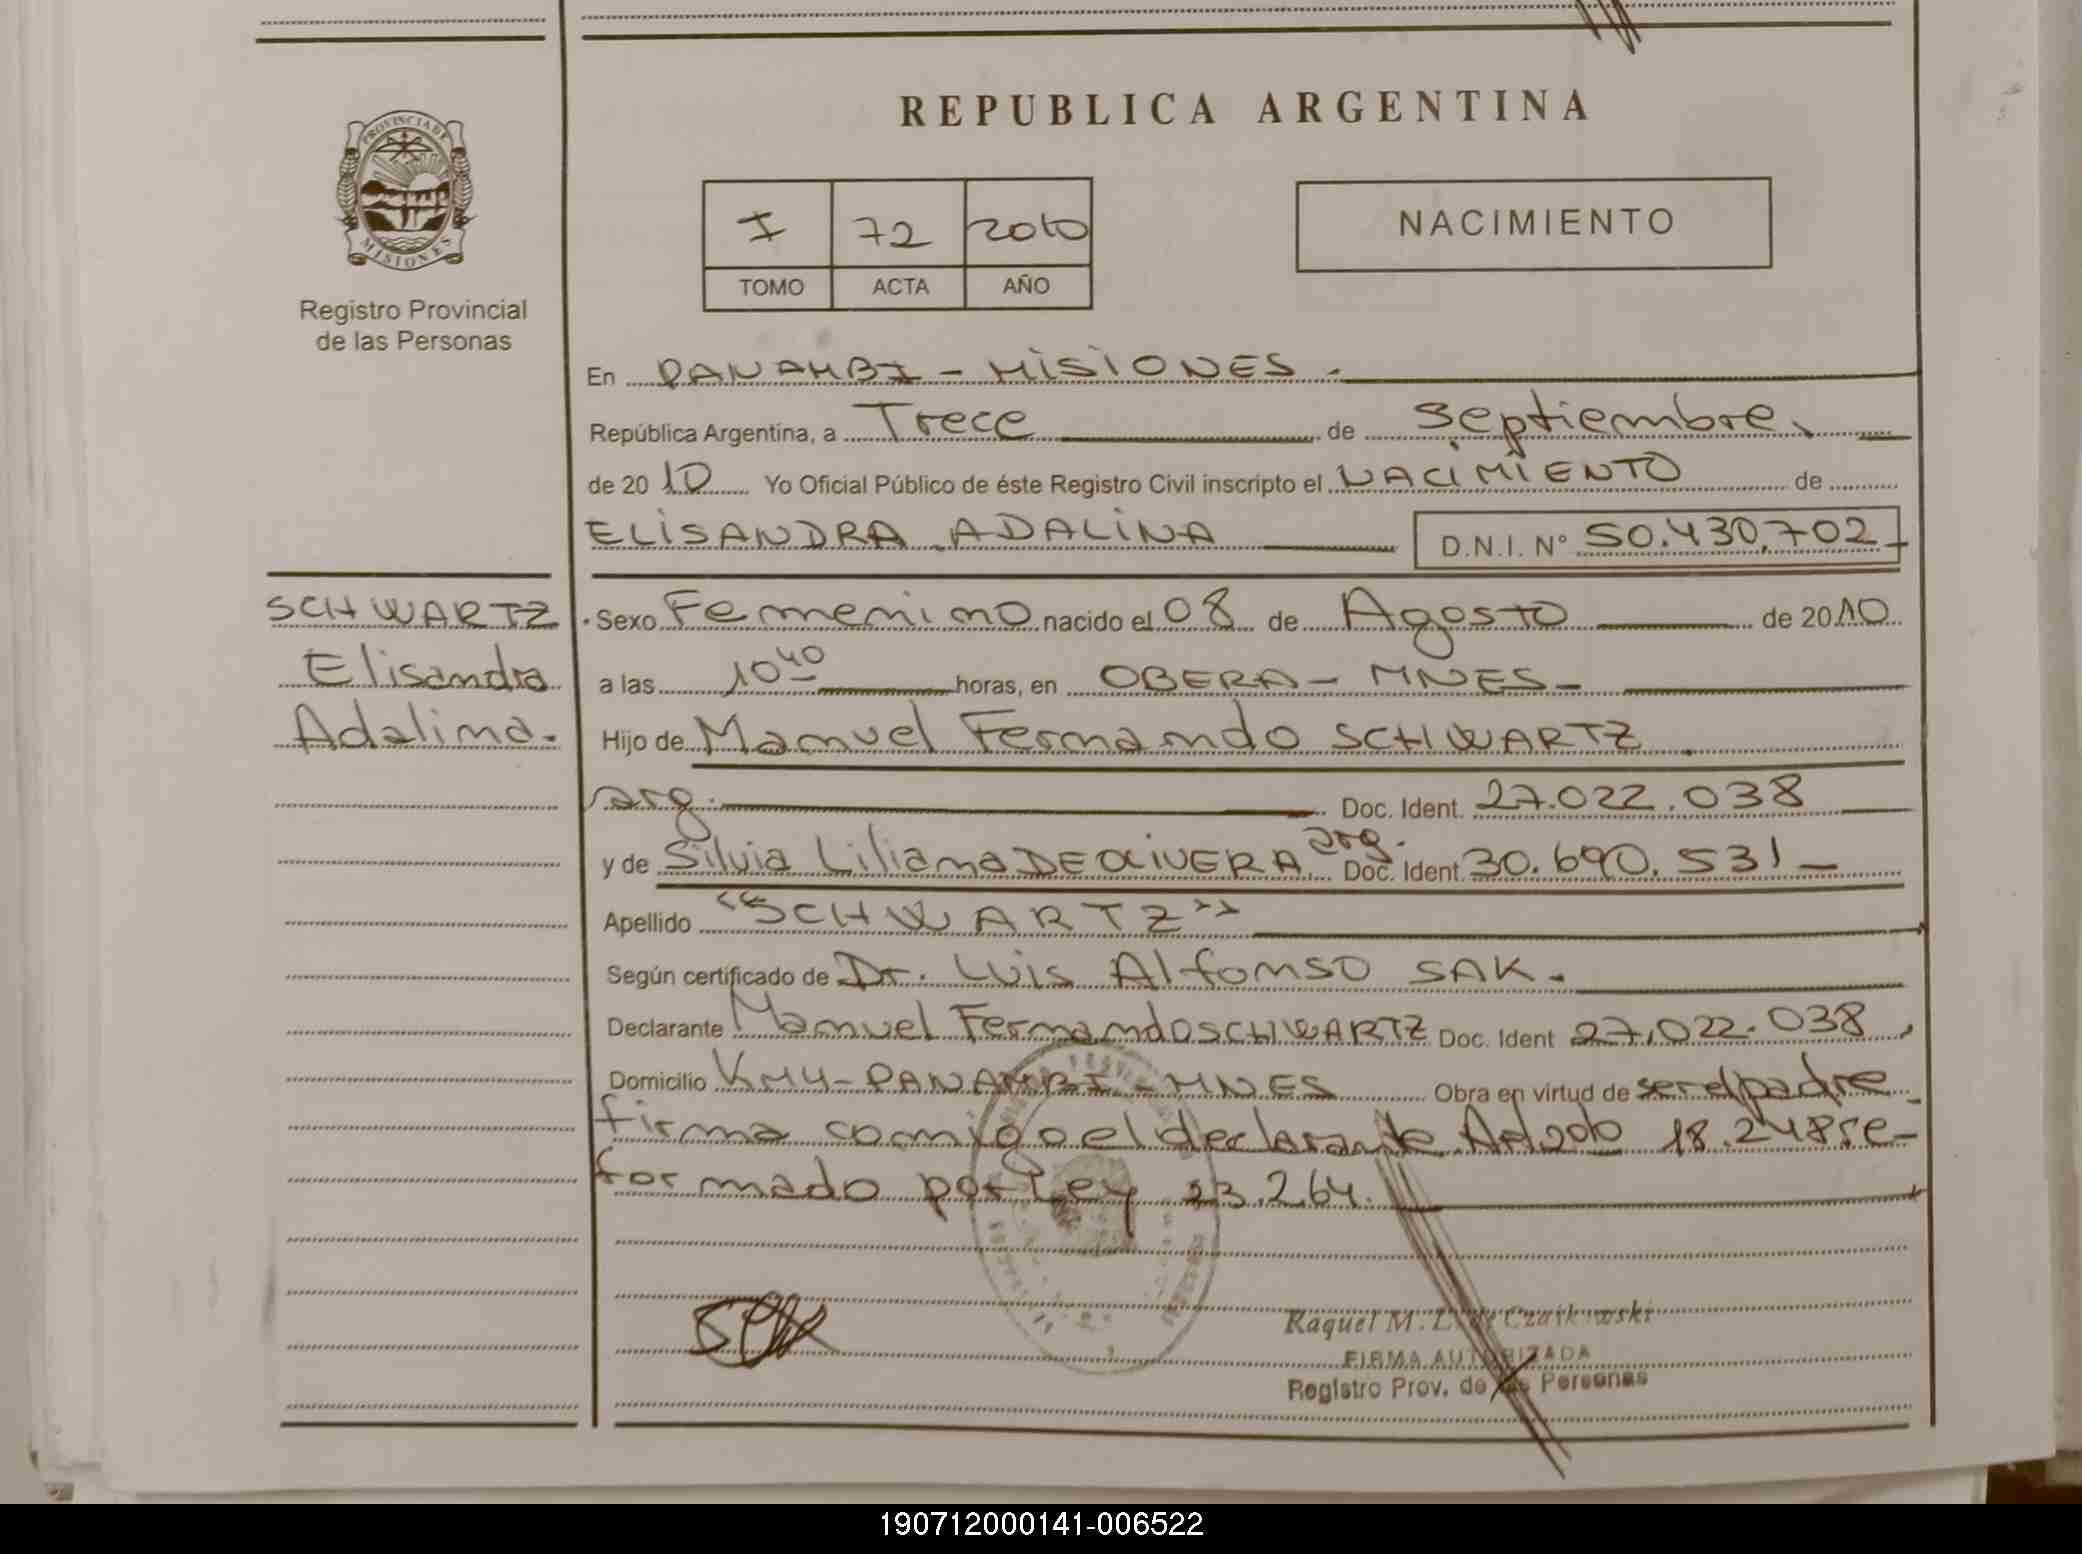 REPUBLICA ARGENTINA
PROVINCIA DE MISIONES
Registro Provincial
de las Personas
I 72 2010
TOMO ACTA AÑO
NACIMIENTO
En PANAMBI - MISIONES.
República Argentina, a Trece de septiembre.
de 2010 Yo Oficial Público de éste Registro Civil inscripto el NACIMIENTO de
ELISANDRA ADALINA D.N.I. Nº 50.430.702
SCHWARTZ
Elisandra
Adalina.
Sexo Femenino nacido el 08 de Agosto de 2010
a las 10 40 horas, en OBERA - MNES -
Hijo de Manuel Fernando SCHWARTZ.
arg. Doc. Ident. 27.022.038
y de Silvia Liliana DE OLIVERA, arg. Doc. Ident. 30.690.531 -
Apellido "SCHWARTZ"
Según certificado de Dr. Luis Alfonso SAK.
Declarante Manuel Fernando SCHWARTZ Doc. Ident 27.022.038,
Domicilio KM4 - PANAMBI - MNES Obra en virtud de ser el padre
firma comigo el declarante. 18.248 re-
formado por Ley 23.264.
Raquel M. L. de Czaikowski
FIRMA AUTORIZADA
Registro Prov. de las Personas
190712000141-006522